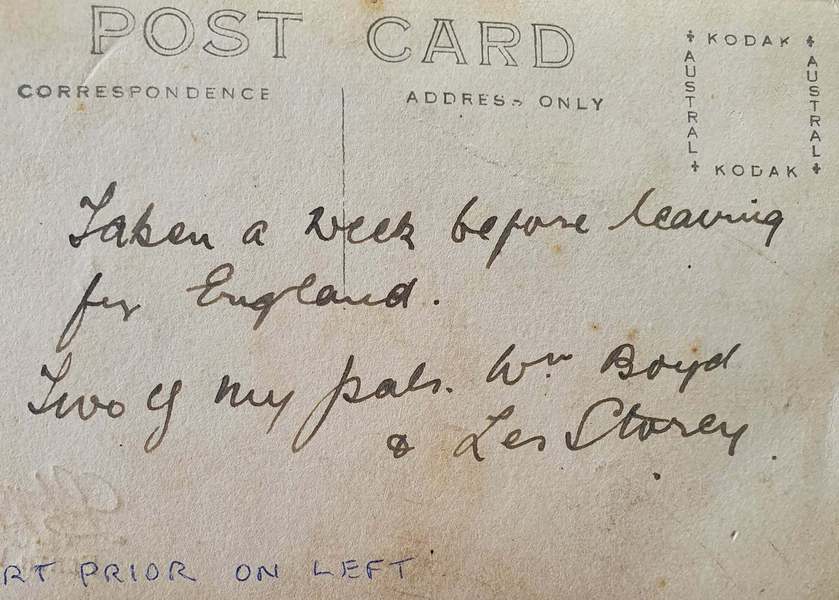 POST CARD
CORRESPONDENCE
ADDRESS ONLY
KODAK
AUSTRAL
AUSTRAL
KODAK
Taken a week before leaving
for England.
Two of my pals. Wm Boyd
& Les Storey.
RT PRIOR ON LEFT